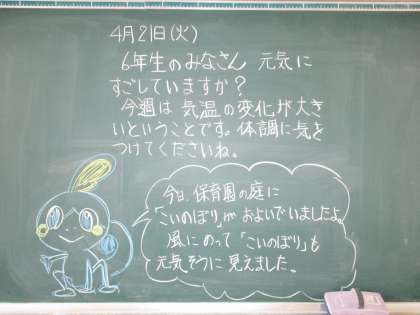 4月21日(火)
6年生のみなさん 元気に
すごしていますか?
今週は 気温の変化が大き
いということです。体調に気を
つけてくださいね。
今日、保育園の庭に
「こいのぼり」が およいでいましたよ。
風にのって「こいのぼり」も
元気そうに見えました。